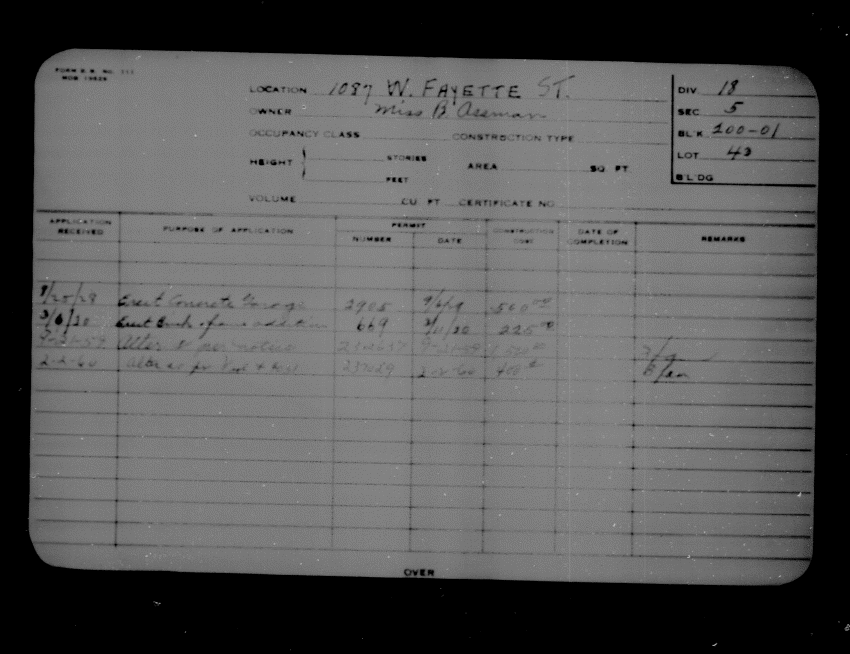 FORM B.B. NO. 111
LOCATION 1087 W. FAYETTE ST.
OWNER Miss B Assman
OCCUPANCY CLASS CONSTRUCTION TYPE
HEIGHT STORIES FEET AREA SQ. FT.
VOLUME CU. FT. CERTIFICATE NO.
DIV. 18
SEC. 5
BL'K 200-01
LOT 43
B'LDG
APPLICATION RECEIVED PURPOSE OF APPLICATION PERMIT NUMBER DATE CONSTRUCTION COST DATE OF COMPLETION REMARKS
Erect Concrete Garage 2905 560 00
3/6/30 Erect Brick frame addition 669 3/11/30 225 00
9-21-59 Alter 9-21-59
2-2-60 Alter as per 237029 2-2-60 400
OVER